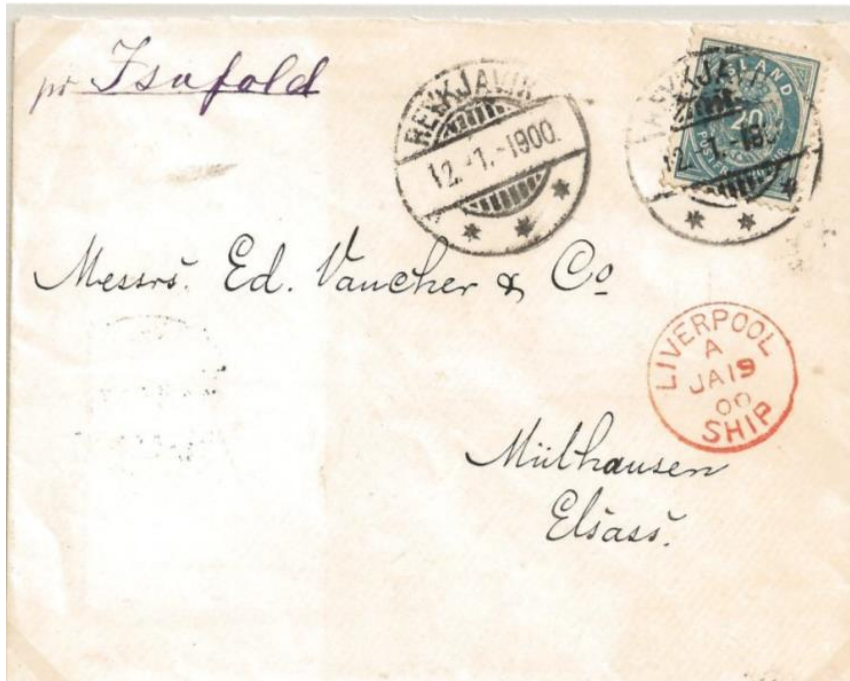 pr Isafold
REYKJAVIK
12.-1.-1900.
ISLAND
20
Messrs. Ed. Vaucher & Co
LIVERPOOL
A
JA 19
00
SHIP
Mülhausen
Elsass.